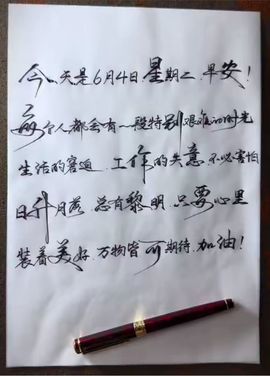 今天是6月4日星期二.早安!
每个人都会有一段特别艰难的时光
生活的窘迫.工作的失意.不必害怕
日升月落.总有黎明.只要心里
装着美好.万物皆可期待.加油!